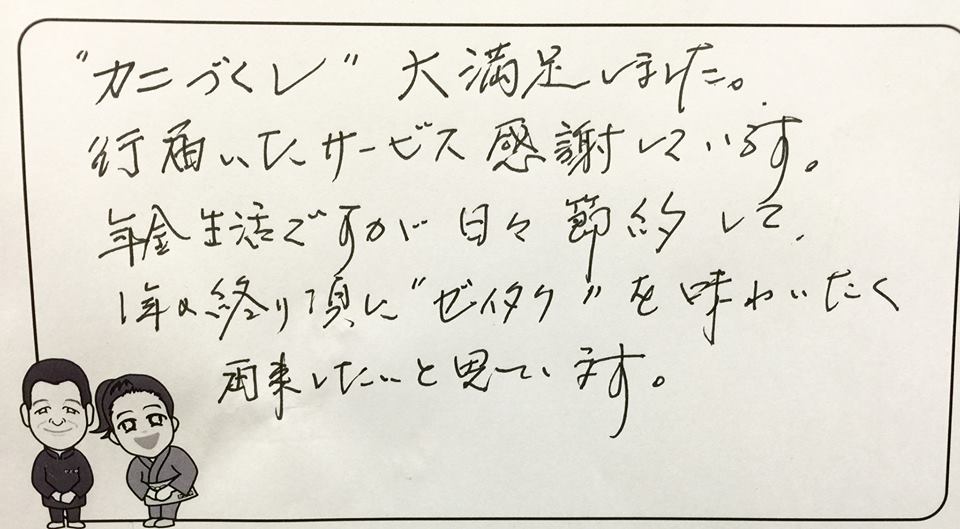 "カニづくし" 大満足しました。
行届いたサービス 感謝しています。
年金生活ですが 日々 節約 して、
1年の終り頃に "ゼイタク" を 味わいたく
再来したいと思っています。